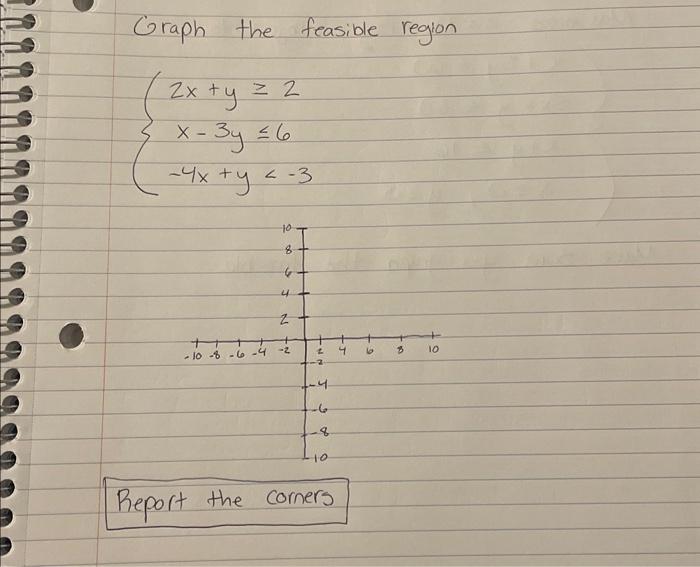 Graph the feasible region
2x + y ≥ 2
x - 3y ≤ 6
-4x + y < -3
10
8
6
4
2
-10 -8 -6 -4 -2 2 4 6 8 10
-2
-4
-6
-8
-10
Report the corners